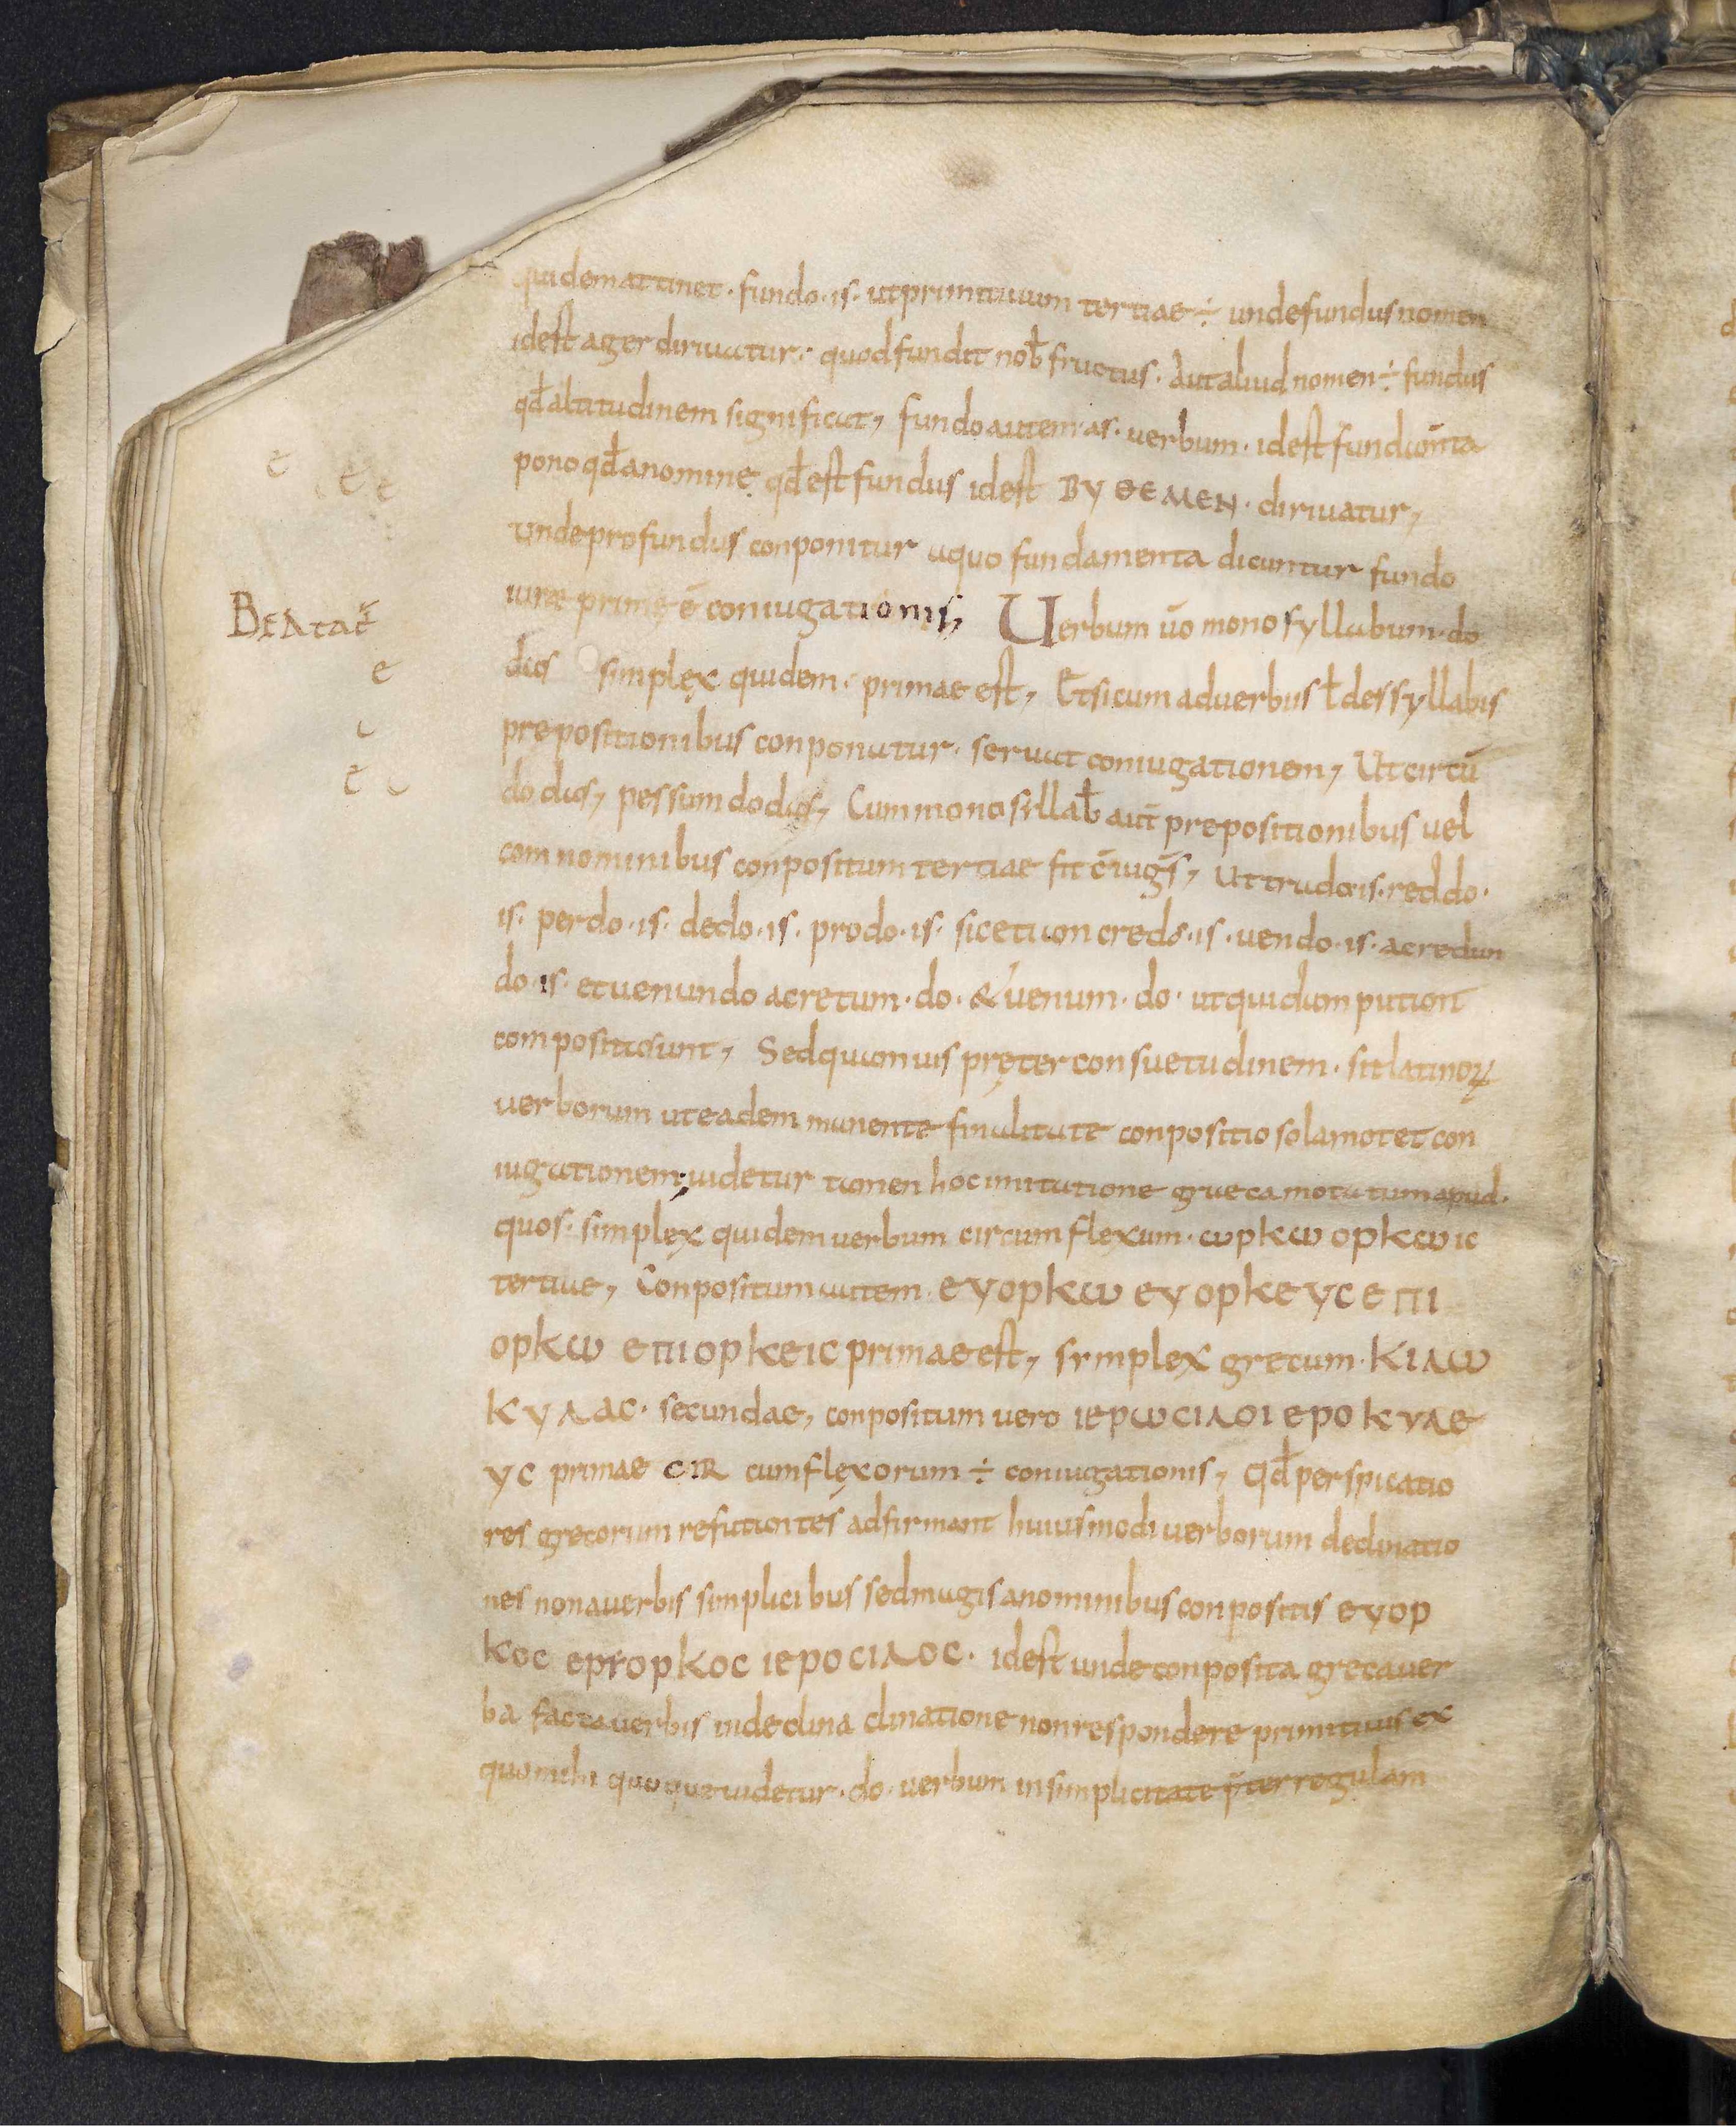 quidem attinet · fundo · is · ut primitiuum tertiae ÷ unde fundus nomen
idest ager diriuatur · quod fundit nob̄ fructus · Aut aliud nomen ÷ fundus
qd̄ altitudinem significat, fundo autem · as · uerbum · idest fundam̄ta
pono qd̄ a nomine qd̄ est fundus idest ΒΥΘΕΜΕΝ · diriuatur,
unde profundus conponitur a quo fundamenta dicuntur fundo
iure prime ē coniugationis, Uerbum ūo monosyllabum · do
das simplex quidem · primae est, Et si cum aduerbiis ł dessyllabis
prepositionibus conponatur · seruat coniugationem, Ut circū
do das, pessum do das, Cum monosillab̄ aut̄ prepositionibus uel
com nominibus conpositum tertiae fit c̄iuḡs, Ut trado · is · reddo ·
is · perdo · is · dedo · is · prodo · is · sic etiam credo · is · uendo · is · a credun
do · is · et uenundo a cretum · do · & uenum · do · ut quidam putant
composita sunt, Sed quamuis pręter consuetudinem · sit latinoꝝ
uerborum ut eadem manente finalitate conpositio sola motet con
iugationem, uidetur tamen hoc imitatione greca motatum apud ·
quos · simplęx quidem uerbum circumflexum · ωρκω ορκωις
tertiae, Conpositum autem · ευορκω ευορκευσ επι
ορκω επιορκεις primae est, symplex grecum · κιλω
κυλας · secundae, conpositum uero ιερωσιλοι εροκυλε
υς primae cir cumflęxorum ÷ coniugationis, Qd̄ perspicatio
res grecorum refutantes adfirmant huiusmodi uerborum declinatio
nes non a uerbis simplicibus sed magis a nominibus conpositis ευορ
κος εριορκος ιεροσιλος · idest unde conposita greca uer
ba facta uerbis indeclina clinatione non respondere primitiuis ex
quo mihi quoque uidetur · do · uerbum in simplicitate p̄ter regulam
Beatat
e
e e
e
e